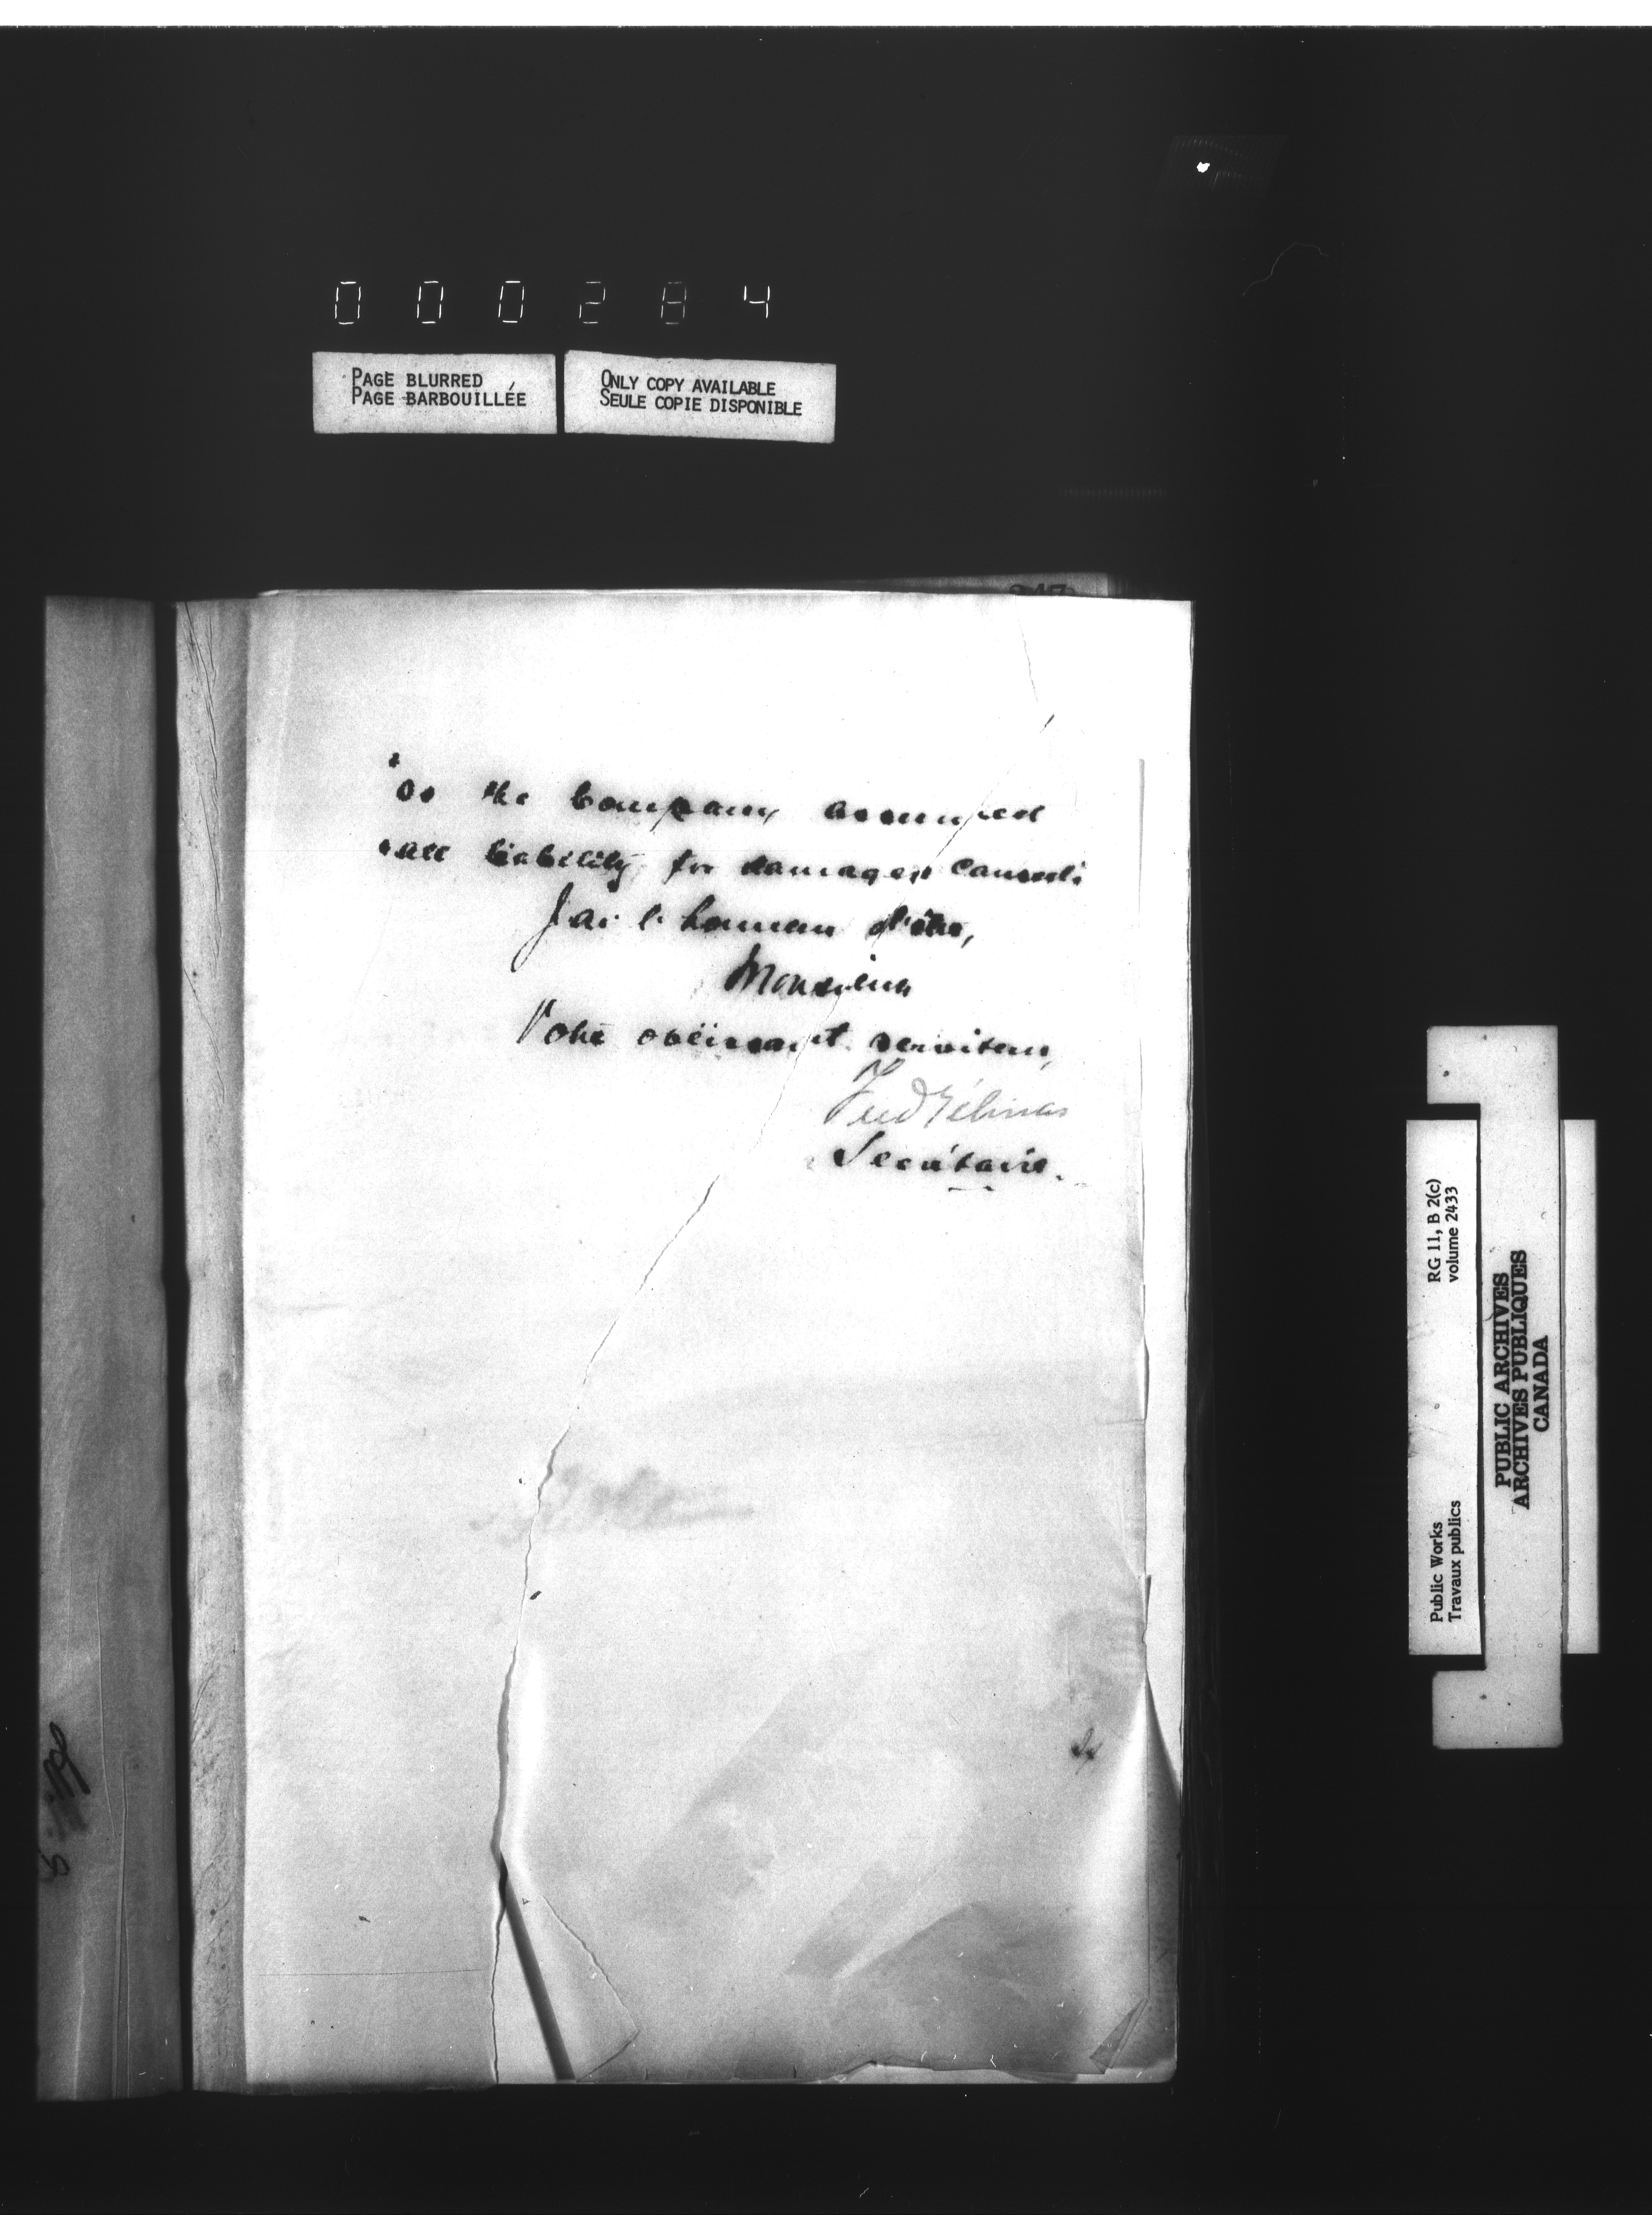 000284
PAGE BLURRED
PAGE BARBOUILLÉE
ONLY COPY AVAILABLE
SEULE COPIE DISPONIBLE
as the Company assumed
all liability for damages caused.
J'ai l'honneur d'être,
Monsieur
Votre obéissant serviteur,
Fred Gélinas
Secrétaire.
Public Works
Travaux publics
RG 11, B 2(c)
volume 2433
PUBLIC ARCHIVES
ARCHIVES PUBLIQUES
CANADA